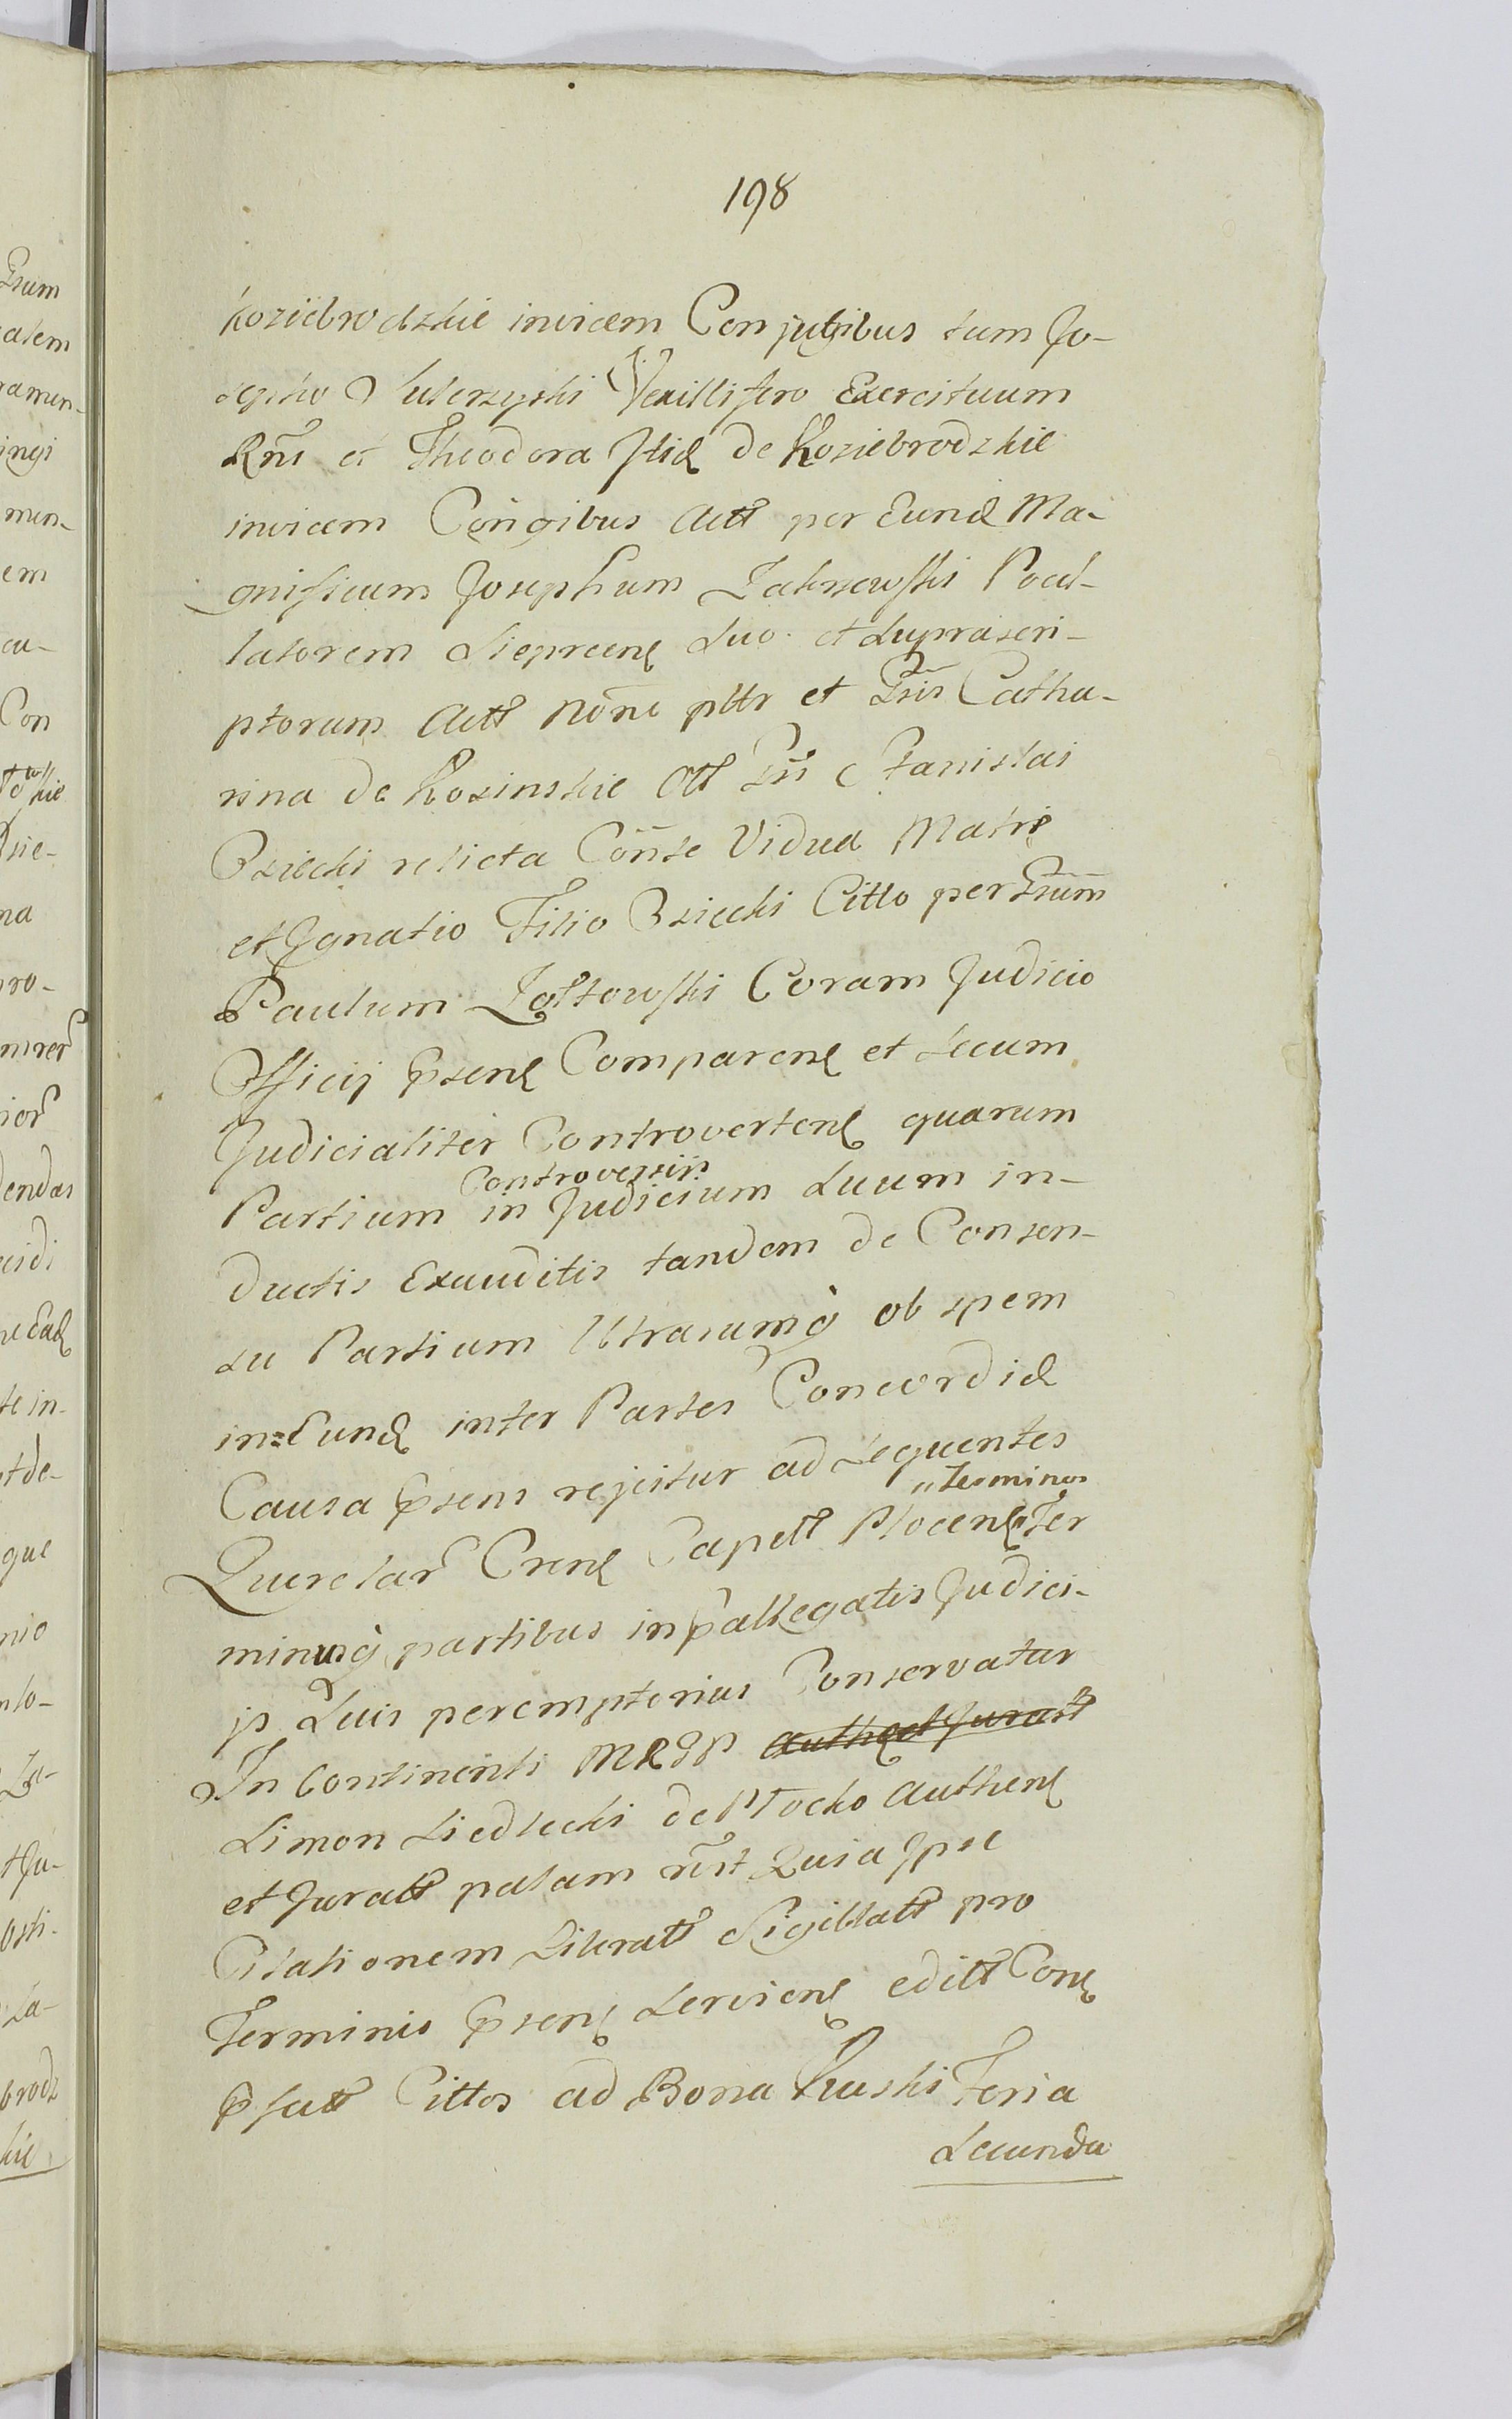 198
Koziebrodzkie invicem Conjugibus tum Jo-
sepho Vexillifero Exercituum
Rñi et Theodora de Koziebrodzkie
invicem Conĩgibus Actt per Eund Ma-
gnificum Josephum Zakrzewski Pocil-
latorem Sieprcen suo et suprascri-
ptorum Actt noñe pltr et Gsis Catha-
rina de Kosinskie Oll Gsi Stanislai
Bziecki relicta Cõnse Vidua Matre
et Ignatio Filio Bziecki Citto per Gsum
Paulum Zoltowski Coram Judicio
Officij Psen Comparen et secum
Judicialiter Controverten quarum
Partium in Judicium suum in-
Controversijs
ductis Exauditis tandem de Consen-
su Partium Utrarumq ob spem
ineund inter Partes Concordia
Causa Psens rejcitur ad sequentes
Terminos
Querelar Cren Capell Plocen Ter
minusq partibus in pallegatis Judici-
js suis peremptorius Conservatur
In Continenti MRGP Authen et Juratt
Simon Siedlecki de Plocko Authen
et Juratt palam rĩst Quia Ipse
Citationem Literatt Sigillatt pro
Terminis Psen servien editt Con
Psatt Cittos ad Bona Kuski Feria
secunda
Gsum
atem
ramen-
ingi
men-
em
cu-
Con
zie-
na
pro-
endas
cidi
te in-
t de-
que
nio
nlo-
Za-
t Ju-
brodz
kie